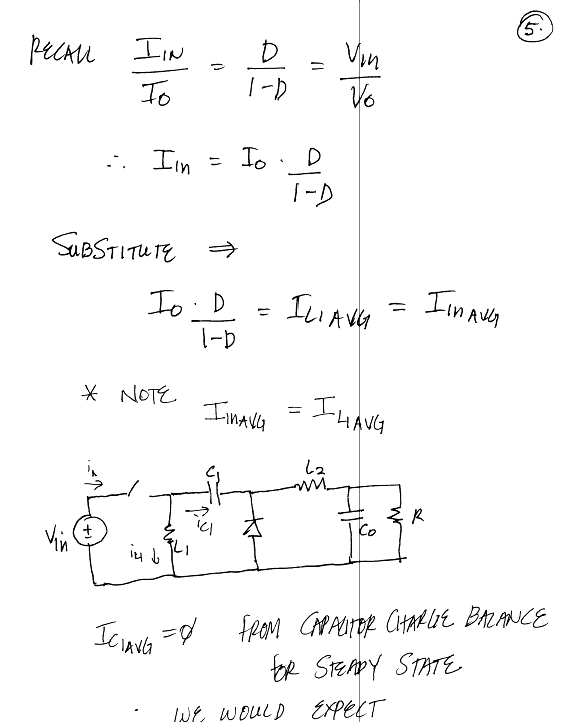 5.
RECALL I_IN / I_O = D / 1-D = V_in / V_O
∴ I_in = I_O · D / 1-D
SUBSTITUTE ⇒
I_O · D / 1-D = I_L1 AVG = I_in AVG
* NOTE I_in AVG = I_L1 AVG
i_n C1 L2
V_in ± i_L1 ↓ L1 i_C1 C_O R
I_C1 AVG = ∅ FROM CAPACITOR CHARGE BALANCE
FOR STEADY STATE
∴ WE WOULD EXPECT